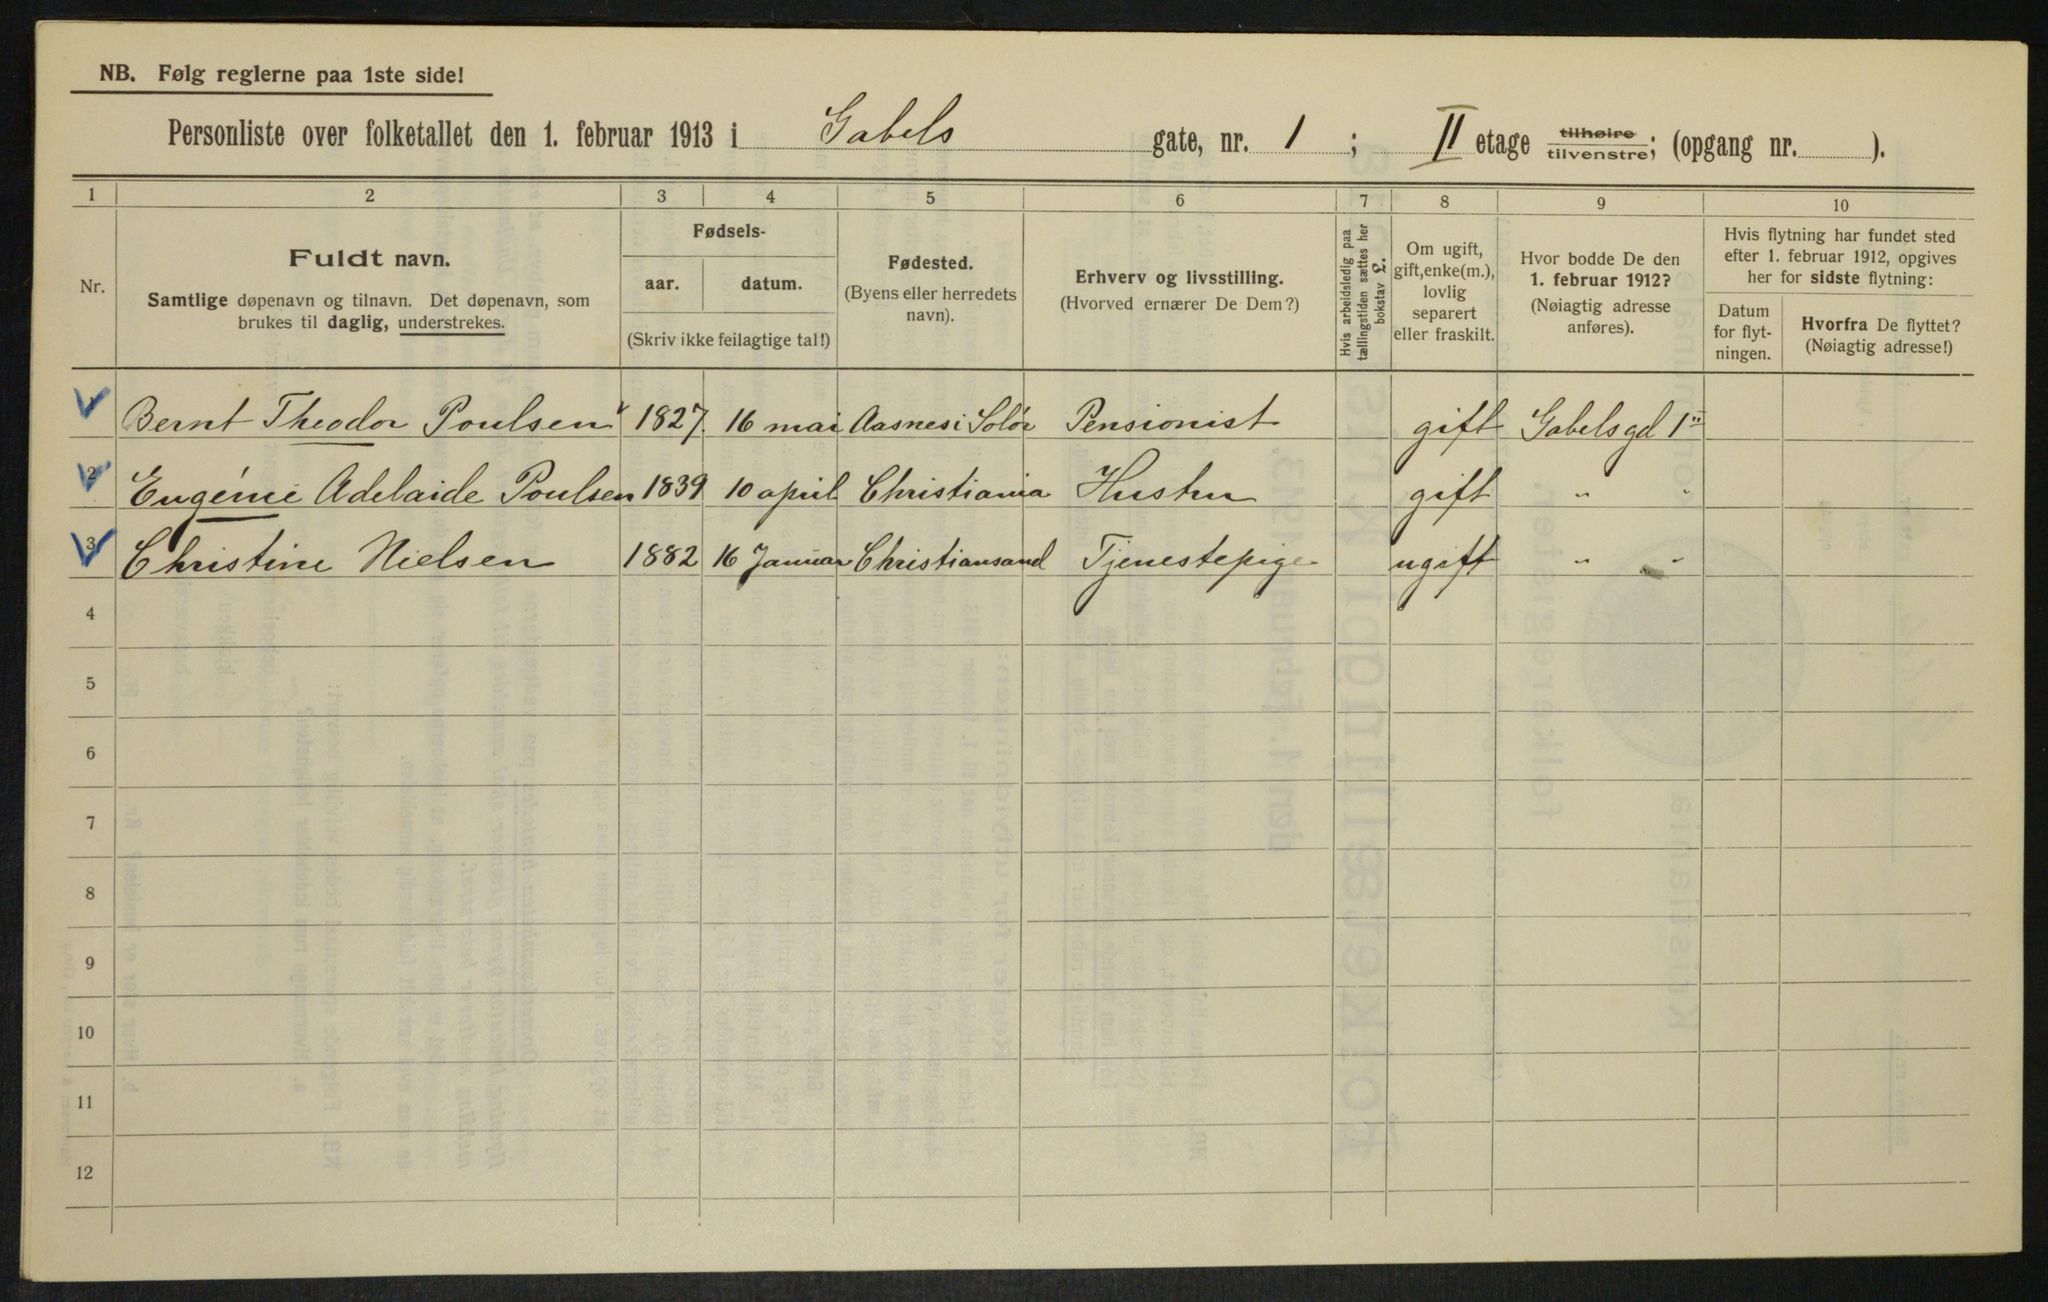 NB. Følg reglerne paa 1ste side!
Personliste over folketallet den 1. februar 1913 i Gabels gate, nr. 1 ; II etage tilhøire tilvenstre; (opgang nr. ).
1 2 3 4 5 6 7 8 9 10
Nr.
Fuldt navn.
Samtlige døpenavn og tilnavn. Det døpenavn, som
brukes til daglig, understrekes.
Fødsels-
aar. datum.
(Skriv ikke feilagtige tal!)
Fødested.
(Byens eller herredets
navn).
Erhverv og livsstilling.
(Hvorved ernærer De Dem?)
Hvis arbeidsledig paa
tællingstiden sættes her
bokstav L.
Om ugift,
gift, enke(m.),
lovlig
separert
eller fraskilt.
Hvor bodde De den
1. februar 1912?
(Nøiagtig adresse
anføres).
Hvis flytning har fundet sted
efter 1. februar 1912, opgives
her for sidste flytning:
Datum
for flyt-
ningen.
Hvorfra De flyttet?
(Nøiagtig adresse!)
1 Bernt Theodor Poulsen 1827. 16 mai Aasnes i Solør Pensionist gift Gabelsgd 1 II
2 Eugénie Adelaide Poulsen 1839 10 april Christiania Hustru gift " "
3 Christine Nielsen 1882 16 Januar Christiansand Tjenestepige ugift " "
4
5
6
7
8
9
10
11
12